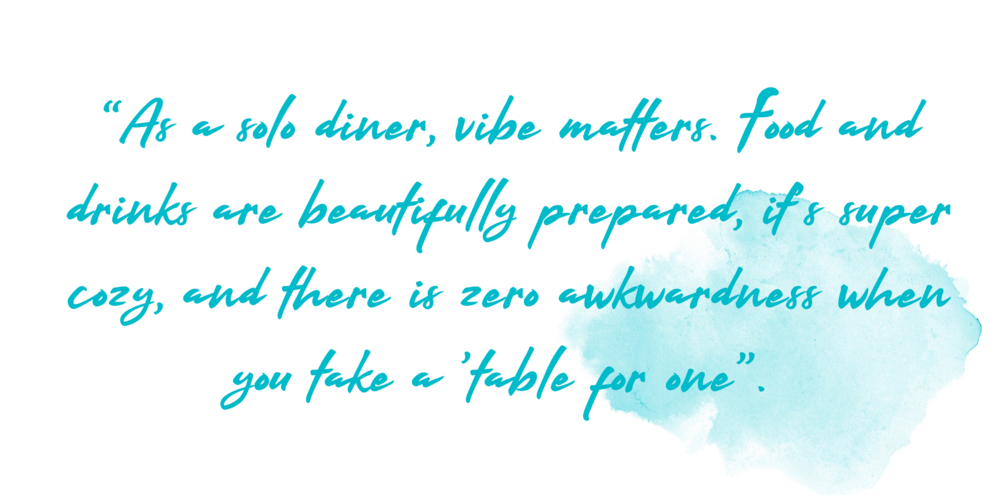 “As a solo diner, vibe matters. Food and
drinks are beautifully prepared, it's super
cozy, and there is zero awkwardness when
you take a 'table for one”.